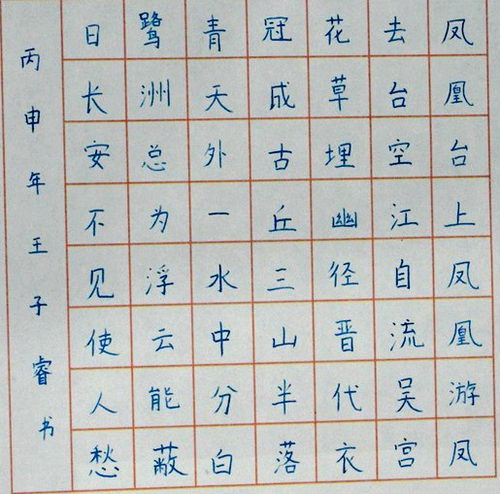 凤凰台上凤凰游凤
去台空江自流吴宫
花草埋幽径晋代衣
冠成古丘三山半落
青天外一水中分白
鹭洲总为浮云能蔽
日长安不见使人愁
丙申年王子睿书